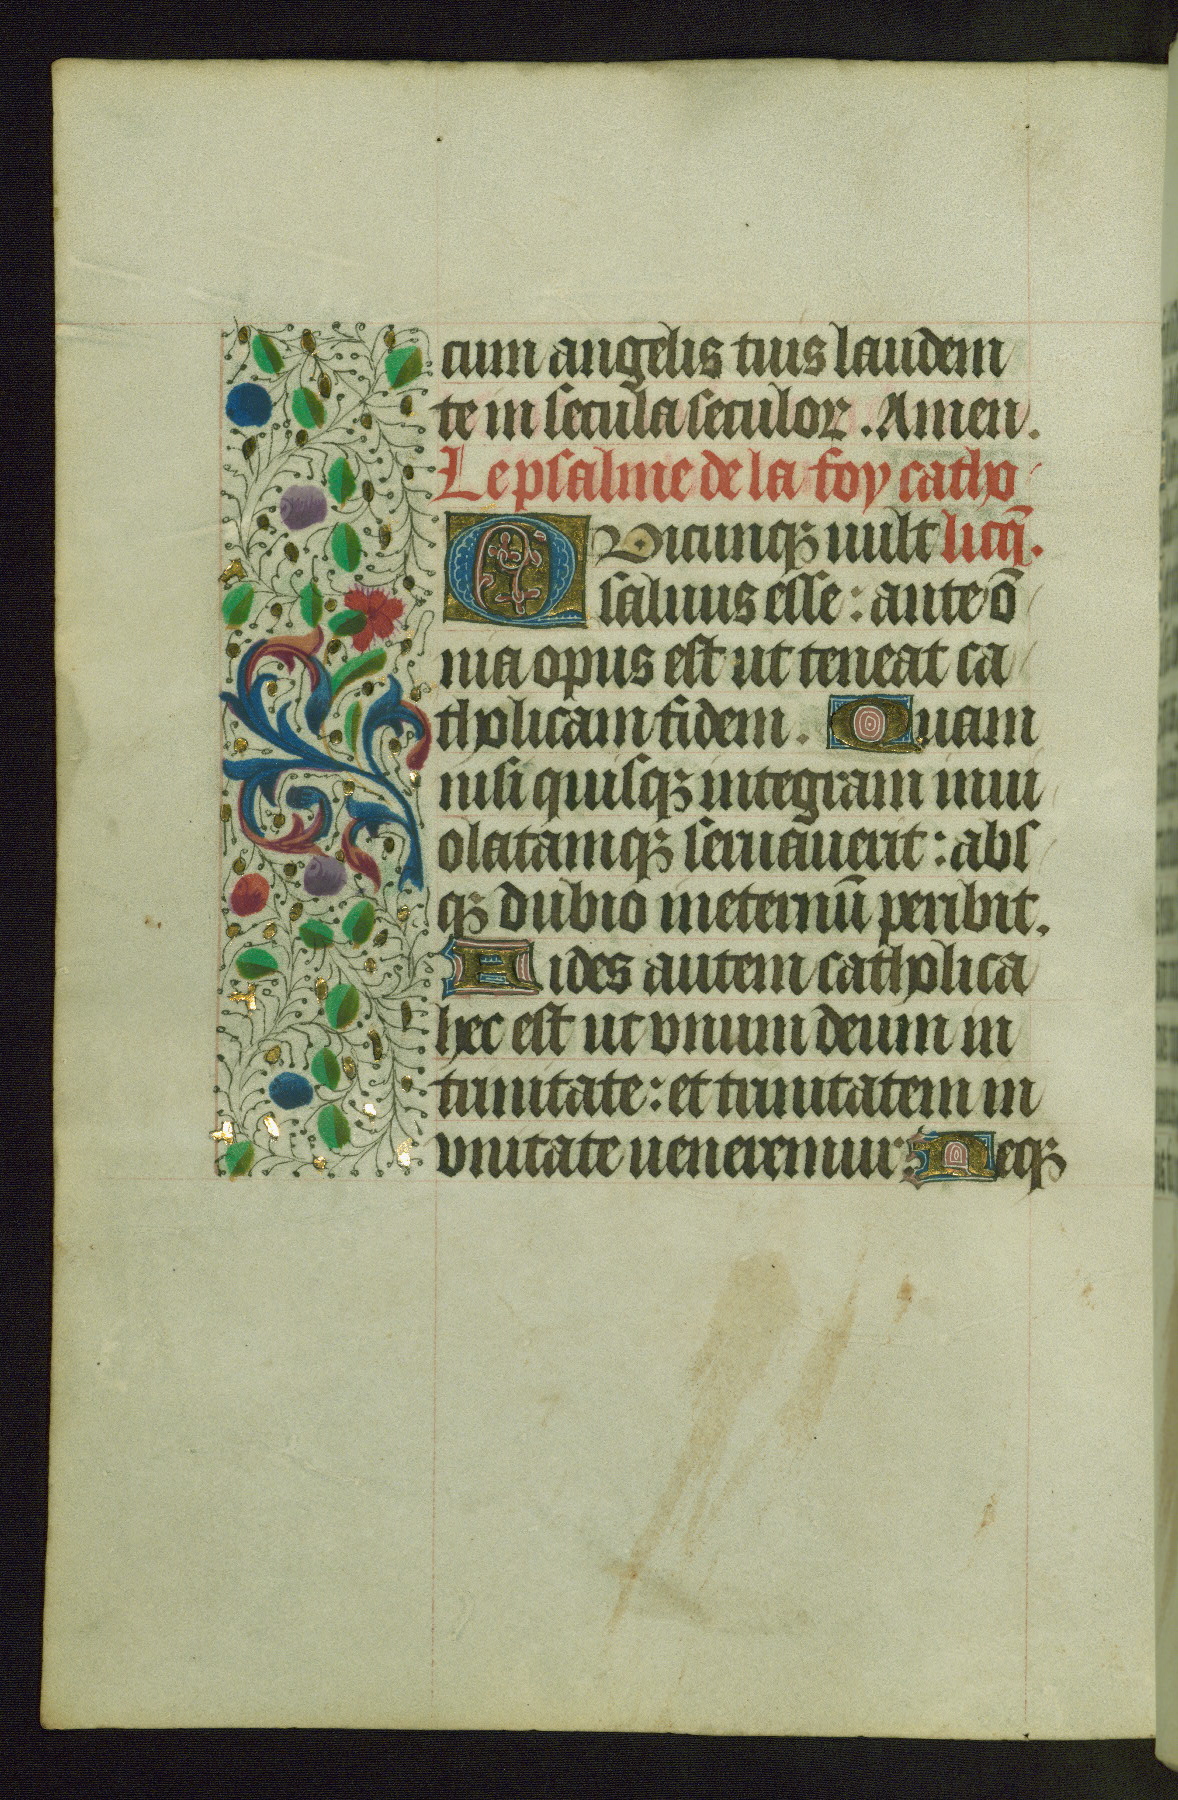 cum angelis tuis laudem
te in secula seculoꝝ. Amen.
Le psalme de la foy catho
Quicunqꝫ uult licq̄.
saluus esse: ante o̅
nia opus est ut teneat ca
tholicam fidem. Quam
nisi quisqꝫ integram inui
olatamqꝫ seruauerit: abs
qꝫ dubio ineternū peribit.
Fides autem catholica
hec est ut vnum deum in
trinitate: et trinitatem in
vnitate ueneremur: Neqꝫ